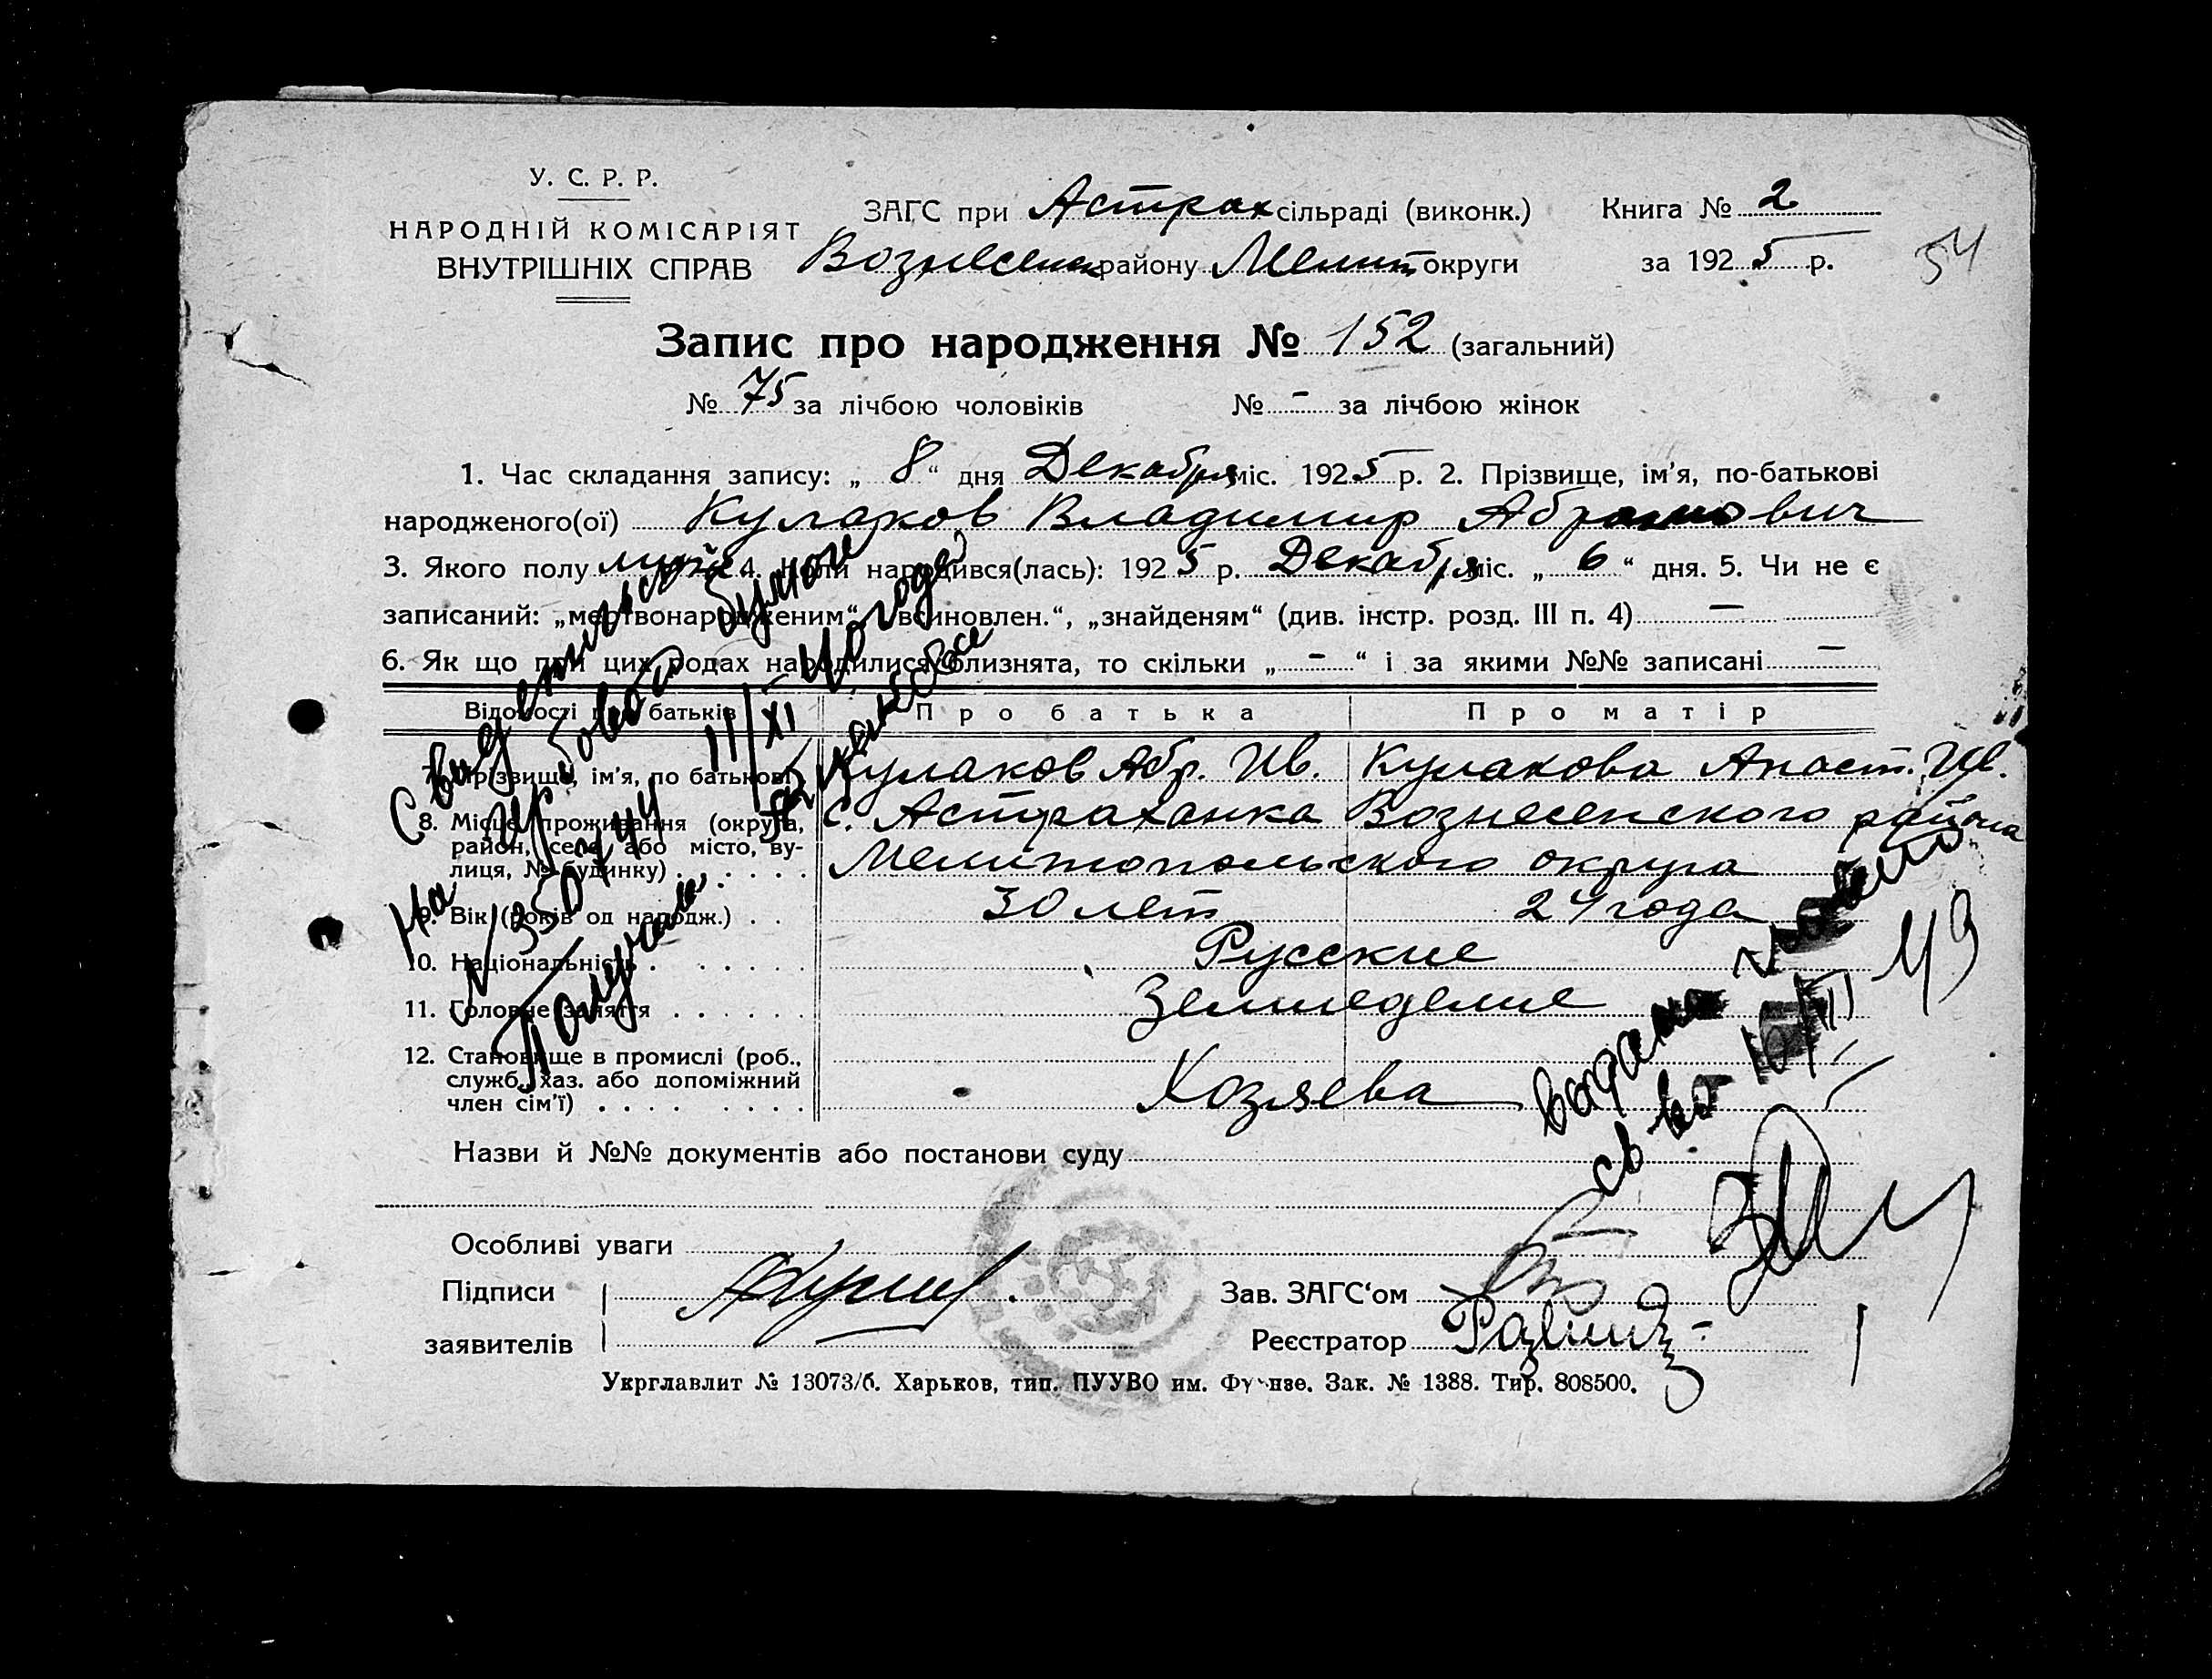 У. С. Р. Р.
НАРОДНІЙ КОМІСАРІЯТ
ВНУТРІШНІХ СПРАВ
ЗАГС при Астрах сільраді (виконк.)
Вознесенк району Мелит округи
Книга № 2
за 1925 р.
54
Запис про народження № 152 (загальний)
№ 75 за лічбою чоловіків № - за лічбою жінок
1. Час складання запису: „ 8 “ дня Декабря міс. 1925 р. 2. Прізвище, ім'я, по-батькові
народженого(ої) Кулаков Владимир Абрамович
3. Якого полу муж. 4. Коли народився(лась): 1925 р. Декабря міс. „ 6 “ дня. 5. Чи не є
записаний: „мертвонародженим“, всиновлен.“, „знайденям“ (див. інстр. розд. III п. 4) —
6. Як що при цих родах народилися близнята, то скільки „ - “ і за якими №№ записані —
Відомості про батьків Про батька Про матір
7. Прізвище, ім'я, по батькові Кулаков Абр. Ив. Кулакова Анаст. Ив.
8. Місце проживання (округа, район, село або місто, вулиця, № будинку) с. Астраханка Вознесенского района
Мелитопольского округа
9. Вік (років од народж.) 30 лет 24 года
10. Національність Русские
11. Головне заняття Земледелие
12. Становище в промислі (роб., служб., хаз. або допоміжний член сім'ї) Хозяева
Свидетельство
на гербовой бумаге
N 350744 11/XI 40 года
Получал
выдано
св во
49
Назви й №№ документів або постанови суду
Особливі уваги
Підписи
заявителів
Зав. ЗАГС‘ом
Реєстратор
Укрглавлит № 13073/б. Харьков, тип. ПУУВО им. Фрунзе. Зак. № 1388. Тир. 808500.